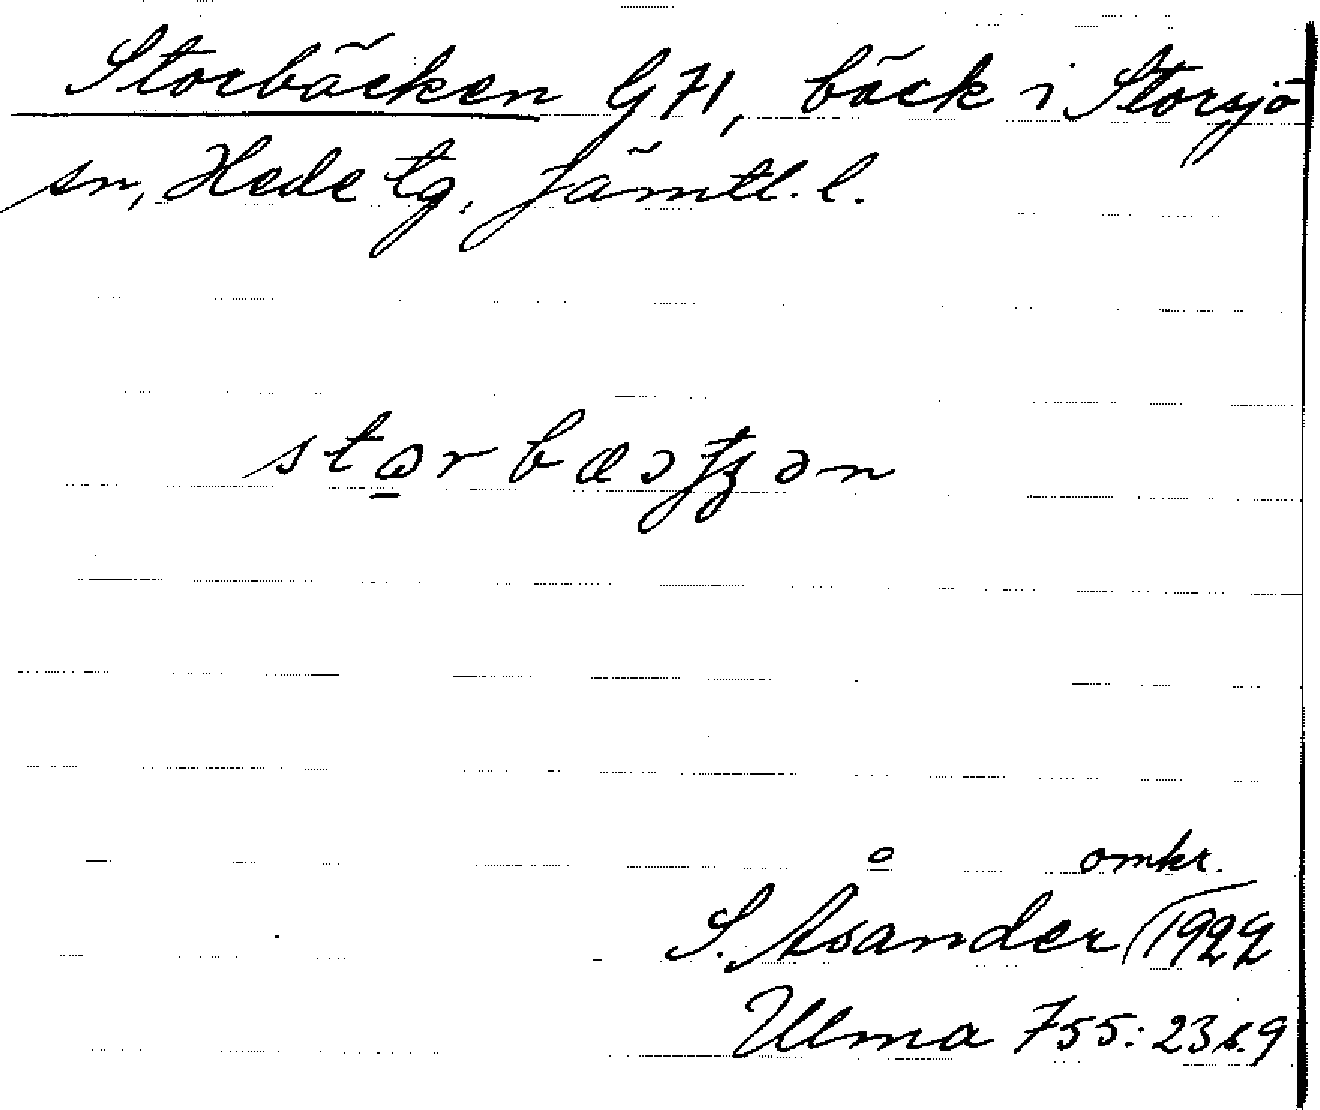 Storbäcken G71, bäck i Storsjö
sn, Hede tg. Jämtl. l.
omkr.
S. Åsander 1922
Ulma 755: 23 s. 9